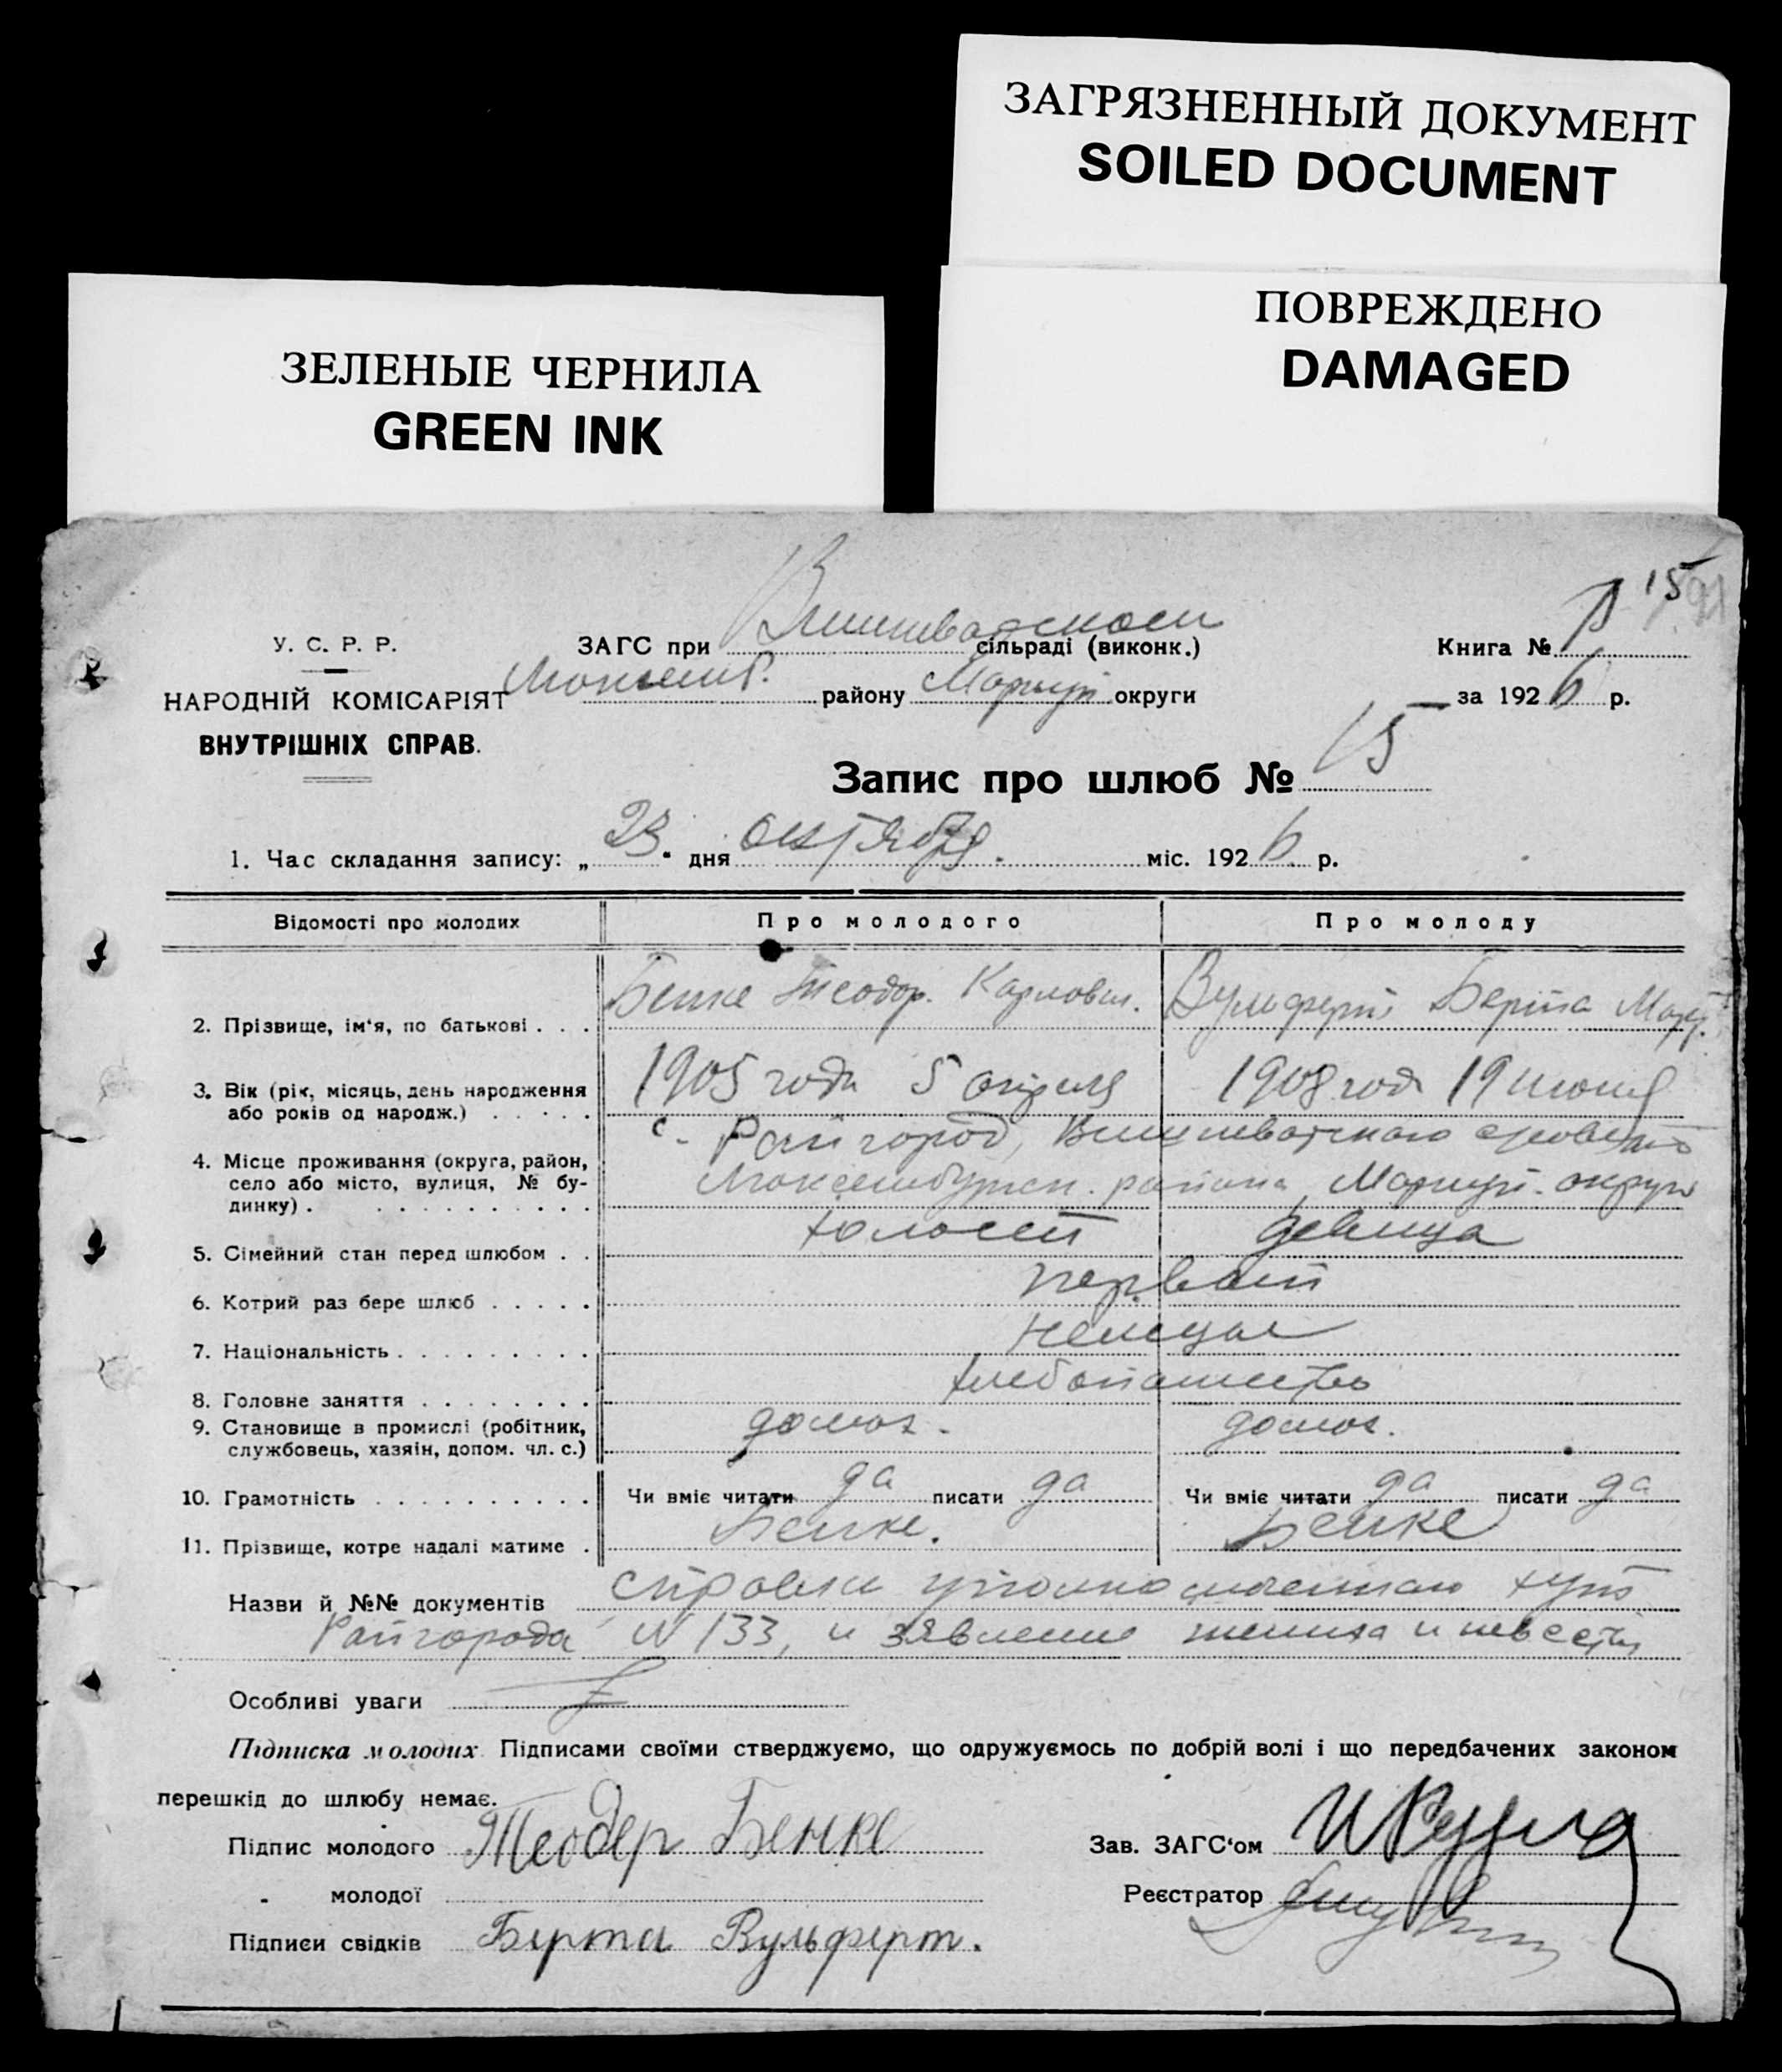 ЗАГРЯЗНЕННЫЙ ДОКУМЕНТ
SOILED DOCUMENT
ПОВРЕЖДЕНО
DAMAGED
ЗЕЛЕНЫЕ ЧЕРНИЛА
GREEN INK
15
У. С. Р. Р.
НАРОДНІЙ КОМІСАРІЯТ
ВНУТРІШНІХ СПРАВ.
ЗАГС при сільраді (виконк.)
району Мариуп округи
Книга №
за 1926 р.
Запис про шлюб № 15
1. Час складання запису: „23" дня октября міс. 1926 р.
Відомості про молодих Про молодого Про молоду
2. Прізвище, ім'я, по батькові . . . Бенке Теодор. Карлович. Вульферт Берта
3. Вік (рік, місяць, день народження 1905 года 5 апреля 1908 года 19 июня
або років од народж.) . . . . .
с. Райгород, Вишневатского
4. Місце проживання (округа, район,
село або місто, вулиця, № бу- района, Мариуп. округи
динку) . . . . . . . . . . .
5. Сімейний стан перед шлюбом . . холост девица
6. Котрий раз бере шлюб . . . . . первый
7. Національність . . . . . . . . . немцы
8. Головне заняття . . . . . . . . хлебопашество
9. Становище в промислі (робітник, домох. домох.
службовець, хазяін, допом. чл. с.)
10. Грамотність . . . . . . . . . . Чи вміє читати да писати да Чи вміє читати да писати да
11. Прізвище, котре надалі матиме . Бенке. Бенке
Назви й №№ документів справки уполномоченного хут
Райгорода N 133, и заявление жениха и невесты
Особливі уваги
Підписка молодих. Підписами своїми стверджуємо, що одружуємось по добрій волі і що передбачених законом
перешкід до шлюбу немає.
Підпис молодого Теодер Бенке
Зав. ЗАГС'ом
" молодої
Реєстратор
Підписи свідків Берта Вульферт.